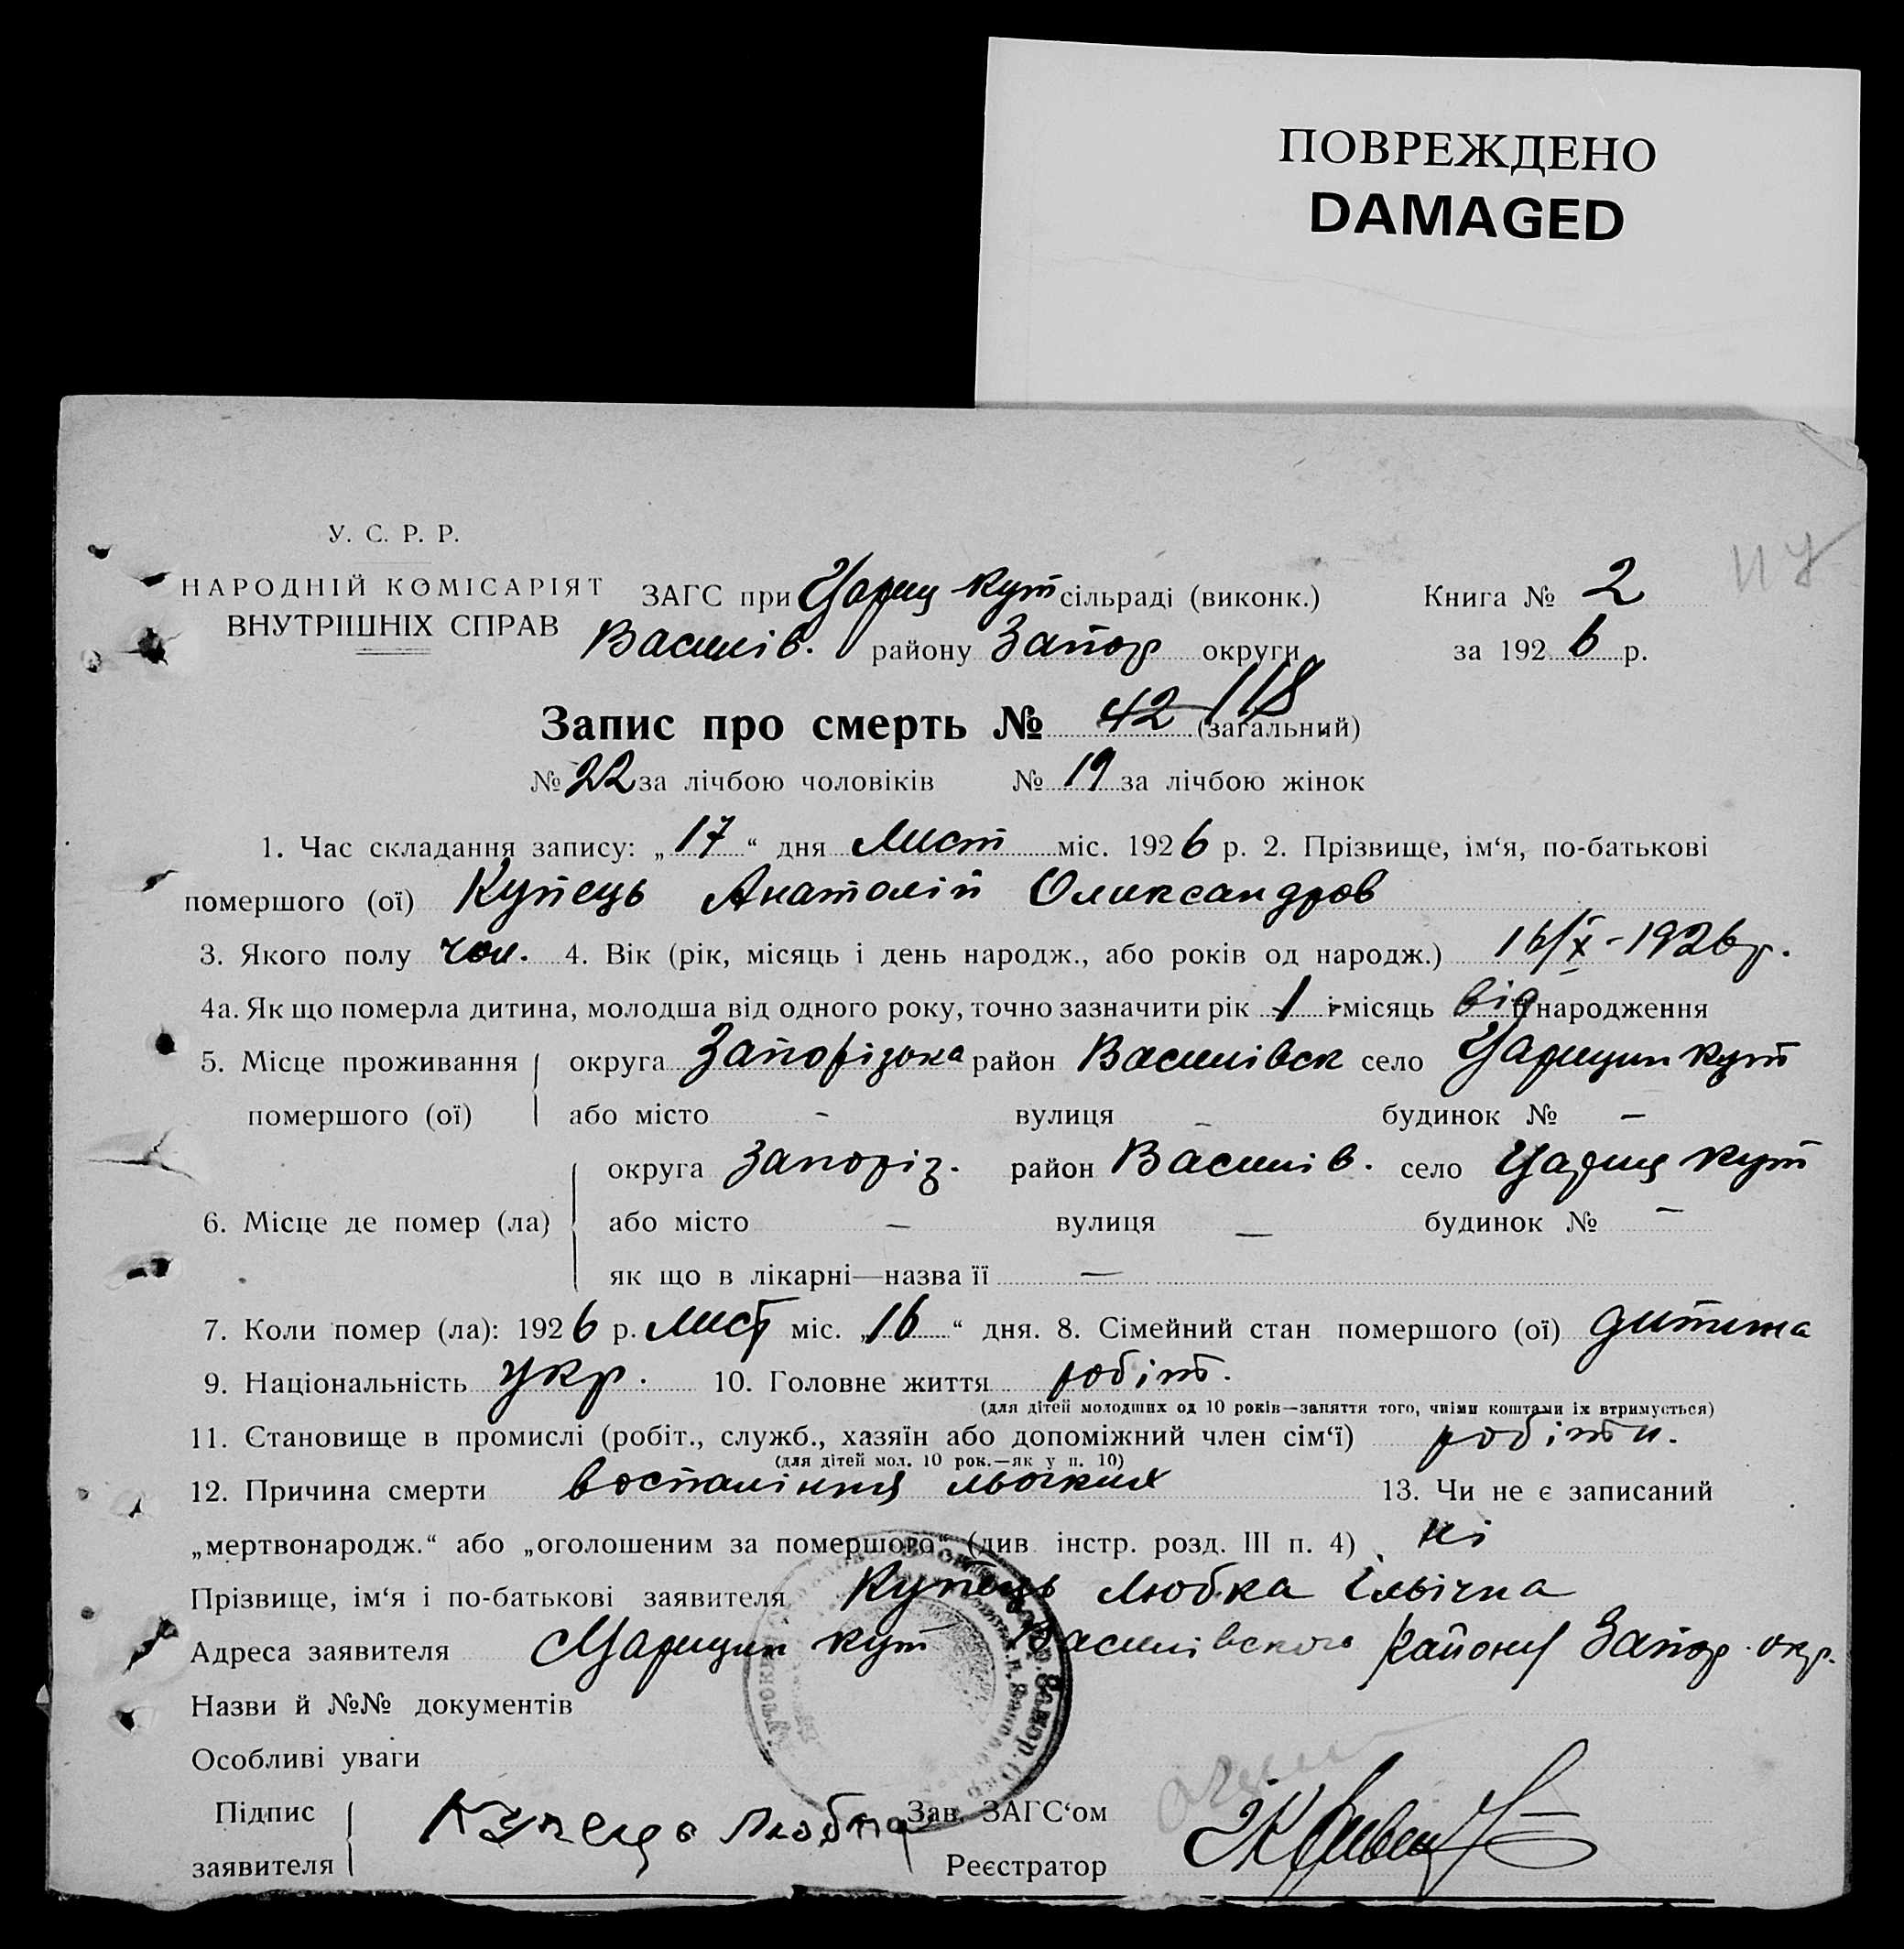 ПОВРЕЖДЕНО
DAMAGED
У. С. Р. Р.
НАРОДНІЙ КОМІСАРІЯТ
ВНУТРІШНІХ СПРАВ
ЗАГС при Цариц Кут сільраді (виконк.) Книга № 2
Василів. району Запор округи за 1926 р.
Запис про смерть № 42 118 (загальний)
№ 22 за лічбою чоловіків № 19 за лічбою жінок
1. Час складання запису: „17“ дня Лист міс. 1926 р. 2. Прізвище, ім‘я, по-батькові
помершого (ої) Купець Анатолій Олександров
3. Якого полу чол. 4. Вік (рік, місяць і день народж., або років од народж.) 16/X-1926 р.
4а. Як що померла дитина, молодша від одного року, точно зазначити рік 1 і місяць від народження
5. Місце проживання округа Запорізька район Василівск село Царицин Кут
помершого (ої) або місто - вулиця - будинок № —
округа Запоріз. район Василів. село Цариц Кут
6. Місце де помер (ла) або місто — вулиця — будинок № —
як що в лікарні—назва її —
7. Коли помер (ла): 1926 р. Лист міс. „16“ дня. 8. Сімейний стан помершого (ої) дитина
9. Національність укр. 10. Головне життя робіт.
(для дітей молодших од 10 років—заняття того, чиїми коштами їх втримується)
11. Становище в промислі (робіт., служб., хазяїн або допоміжний член сім‘ї) робітн.
(для дітей мол. 10 рок.—як у п. 10)
12. Причина смерти воспаління льогких 13. Чи не є записаний
„мертвонародж.“ або „оголошеним за помершого“ (див. інстр. розд. III п. 4) ні
Прізвище, ім‘я і по-батькові заявителя Купець Любка Ілвічна
Адреса заявителя Царицин Кут Василівского Району Запор. окр.
Назви й №№ документів
Особливі уваги
Підпис заявителя Купець Любка
Зав. ЗАГС‘ом
Реєстратор